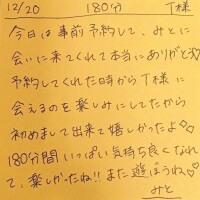 12/20 180分 T様
今日は事前予約して、みとに
会いに来てくれて本当にありがと♡
予約してくれた時からT様に
会えるのを楽しみにしてたから
初めまして出来て嬉しかったよ♡
180分間いっぱい気持ち良くなれ
て、楽しかったね!!また遊ぼうね♡
みと